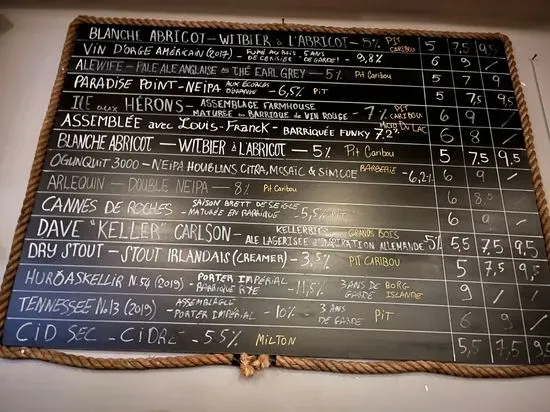 BLANCHE ABRICOT - WITBIER À L'ABRICOT - 5% PIT CARIBOU 5 7,5 9,5
VIN D'ORGE AMÉRICAIN (2017) - FUMÉ AU BOIS DE CERISIER 5 ANS DE GARDE! - 9,8% 6 9 /
ALEWIFE - PALE ALE ANGLAISE AU THÉ EARL GREY - 5% Pit Caribou 5 7 9
PARADISE POINT - NEIPA AUX ÉCORCES D'ORANGE - 6,5% PIT 5 7,5 9,5
ILE AUX HÉRONS - ASSEMBLAGE FARMHOUSE MATURÉE EN BARRIQUE DE VIN ROUGE - 7% PIT CARIBOU 6 9 /
ASSEMBLÉE avec Louis-Franck - BARRIQUÉE FUNKY 7.2% DU LAC 6 8 /
BLANCHE ABRICOT - WITBIER À L'ABRICOT - 5% Pit Caribou 5 7,5 9,5
OGUNQUIT 3000 - NEIPA HOUBLONS CITRA, MOSAÏC & SIMCOE BARBERIE - 6,2% 6 9 /
ARLEQUIN - DOUBLE NEIPA - 8% Pit Caribou 6 8,5 /
CANNES DE ROCHES - SAISON BRETT DE SEIGLE - MATURÉE EN BARRIQUE - 5,5% PIT 6 9 /
DAVE "KELLER" CARLSON - KELLERBIER GRANDS BOIS ALE LAGERISÉE D'INSPIRATION ALLEMANDE 5% 5,5 7,5 9,5
DRY STOUT - STOUT IRLANDAIS (CREAMER) - 3,5% PIT CARIBOU 5 7,5 9,5
HURÐASKELLIR N.54 (2019) - PORTER IMPÉRIAL BARRIQUE RYE - 11,5% 3 ANS DE GARDE BORG ISLANDE 9 / /
TENNESSEE No13 (2019) - ASSEMBLAGE PORTER IMPÉRIAL - 10% 3 ANS DE GARDE PIT 6 9 /
CID SEC - CIDRE - 5.5% MILTON 5,5 7,5 9,5